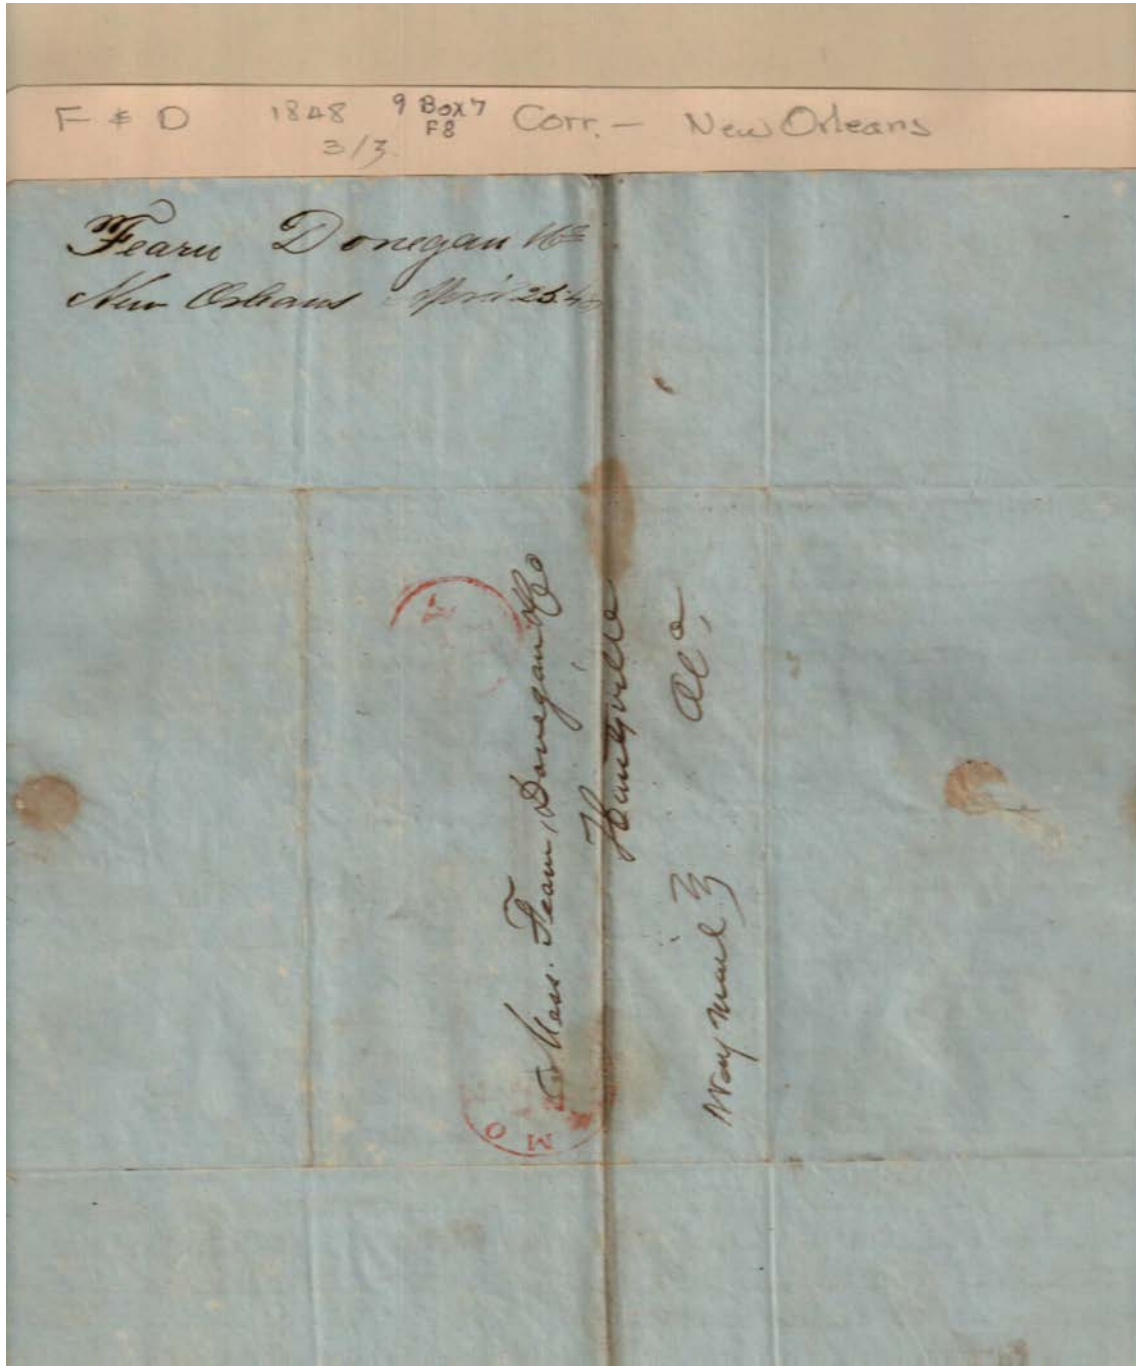 F & D 1848 9 Box 7 Corr. - New Orleans
3/3. F8
Fearn Donegan &Co
New Orleans April 25.
Mess. Fearn, Donegan &Co
Huntsville
Ala,
Way Mail